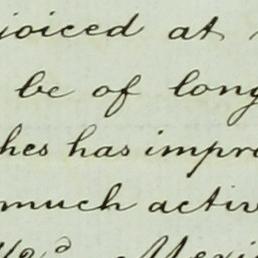 joiced at
be of long
hes has impro
much activ